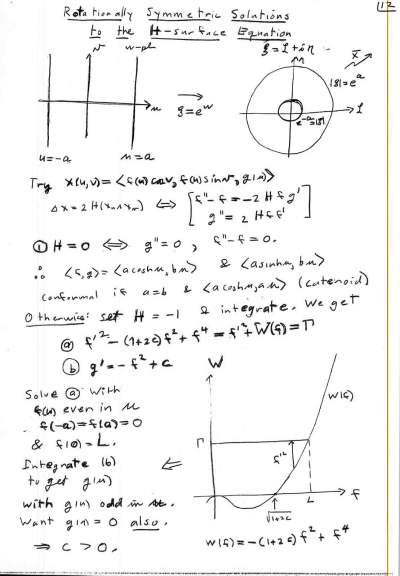 12
Rotationally Symmetric Solutions
to the H-surface Equation
v w-pl
ξ = L + in
n
X
|ξ| = e^a
u
ξ = e^w
e^-a = |ξ|
L
u = -a
u = a
Try X(u,v) = <f(u) cos v, f(u) sin v, g(u)>
Δx = 2H(x_u ∧ x_v) ⟺ [ f'' - f = -2Hfg'
g'' = 2Hff' ]
① H = 0 ⟺ g'' = 0, f'' - f = 0.
∴ <f,g> = <a cosh u, bu> & <a sinh u, bu>
conformal if a=b & <a cosh u, au> (catenoid)
Otherwise: set H = -1 & integrate. We get
ⓐ f'² - (1+2c)f² + f⁴ = f'² + W(f) = Γ
ⓑ g' = -f² + c
Solve ⓐ with
f(u) even in u
f(-a) = f(a) = 0
& f(0) = L.
Integrate (b)
to get g(u)
with g(u) odd in u.
Want g(u) = 0 also.
⇒ c > 0.
⇐
W
W(f)
Γ
f'²
L
f
√1+2c
W(f) = -(1+2c)f² + f⁴